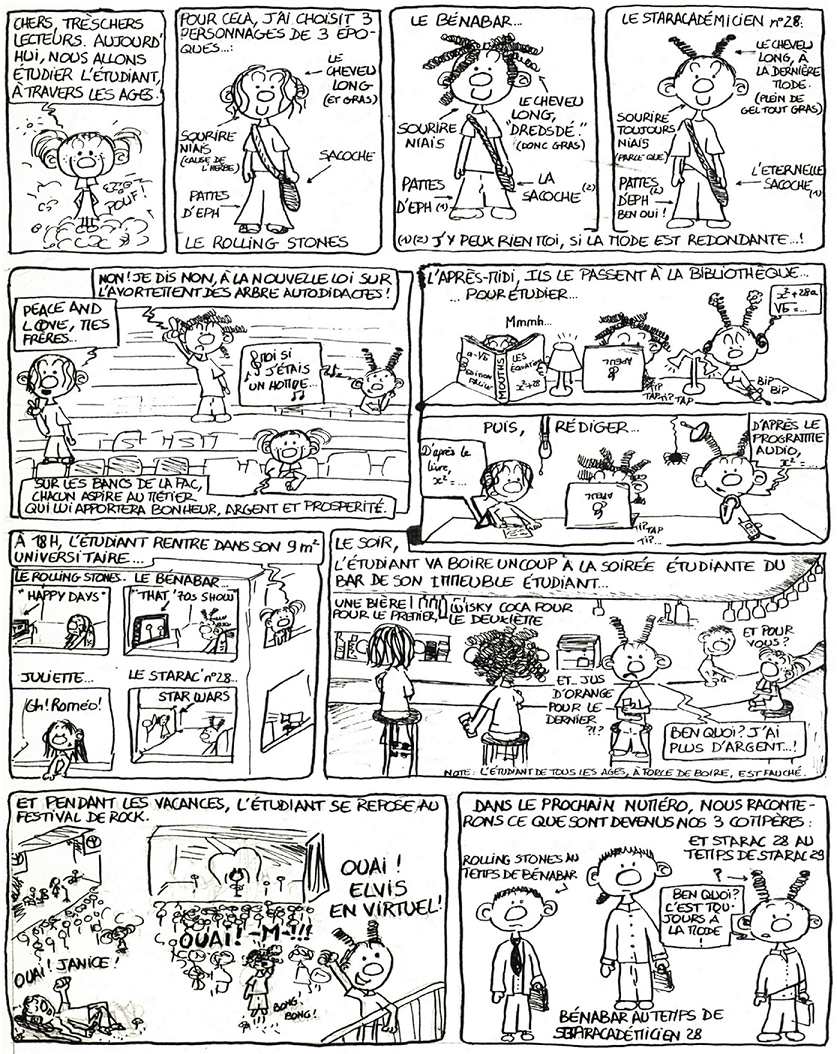 CHERS, TRÈS CHERS
LECTEURS. AUJOURD'
HUI, NOUS ALLONS
ÉTUDIER L'ÉTUDIANT,
À TRAVERS LES AGES!
POUF!
POUR CELA, J'AI CHOISIT 3
PERSONNAGES DE 3 ÉPO-
QUES...:
LE
CHEVEU
LONG
(ET GRAS)
SOURIRE
NIAIS
(CAUSE DE
L'HERBE)
SACOCHE
PATTES
D'EPH
LE ROLLING STONES
LE BÉNABAR...
LE CHEVEU
LONG,
"DREDSDÉ."
(DONC GRAS)
SOURIRE
NIAIS
PATTES
D'EPH (1)
LA
SACOCHE (2)
LE STARACADÉMICIEN n°28:
LE CHEVEU
LONG, À
LA DERNIÈRE
MODE.
(PLEIN DE
GEL TOUT GRAS)
SOURIRE
TOUJOURS
NIAIS
(PARCE QUE)
L'ETERNELLE
SACOCHE (1)
PATTES (2)
D'EPH
BEN OUI!
(1)(2) J'Y PEUX RIEN MOI, SI LA MODE EST REDONDANTE...!
NON! JE DIS NON, À LA NOUVELLE LOI SUR
L'AVORTEMENT DES ARBRE AUTODIDACTES!
PEACE AND
LOVE, MES
FRÈRES...
MOI SI
J'ÉTAIS
UN HOMME...
SUR LES BANCS DE LA FAC,
CHACUN ASPIRE AU MÉTIER
QUI LUI APPORTERA BONHEUR, ARGENT ET PROSPERITÉ.
L'APRÈS-MIDI, ILS LE PASSENT À LA BIBLIOTHÈQUE...
... POUR ÉTUDIER...
Mmmh...
a-√b
MOUTHS
LES
ÉQUATION
x²+28
APEUL
TIP
TAP
TIP
TAP
x²+28a
√b=...
BIP
BIP
PUIS, RÉDIGER...
D'après le
livre,
x²=...
APEUL
TIP
TAP
TIP...
D'APRÈS LE
PROGRAMME
AUDIO,
x²=...
À 18H, L'ÉTUDIANT RENTRE DANS SON 9m²
UNIVERSITAIRE...
LE ROLLING STONES.
"HAPPY DAYS"
LE BÉNABAR...
"THAT '70s SHOW"
JULIETTE...
Oh! Roméo!
LE STARAC n°28...
STAR WARS
LE SOIR,
L'ÉTUDIANT VA BOIRE UN COUP À LA SOIRÉE ÉTUDIANTE DU
BAR DE SON IMMEUBLE ÉTUDIANT...
UNE BIÈRE
POUR LE PREMIER,
WISKY COCA POUR
LE DEUXIÈME
ET... JUS
D'ORANGE
POUR LE
DERNIER
?!?
ET POUR
VOUS?
BEN QUOI? J'AI
PLUS D'ARGENT...!
NOTE: L'ÉTUDIANT DE TOUS LES AGES, À FORCE DE BOIRE, EST FAUCHÉ.
ET PENDANT LES VACANCES, L'ÉTUDIANT SE REPOSE AU
FESTIVAL DE ROCK.
OUAI! JANICE!
OUAI! -M-!!!
BONG.
BONG!
OUAI!
ELVIS
EN VIRTUEL!
DANS LE PROCHAIN NUMÉRO, NOUS RACONTE-
RONS CE QUE SONT DEVENUS NOS 3 COMPÈRES:
ROLLING STONES AU
TEMPS DE BÉNABAR
ET STARAC 28 AU
TEMPS DE STARAC 29
?
BEN QUOI?
C'EST TOU-
JOURS À
LA MODE
!
BÉNABAR AU TEMPS DE
STARACADÉMICIEN 28